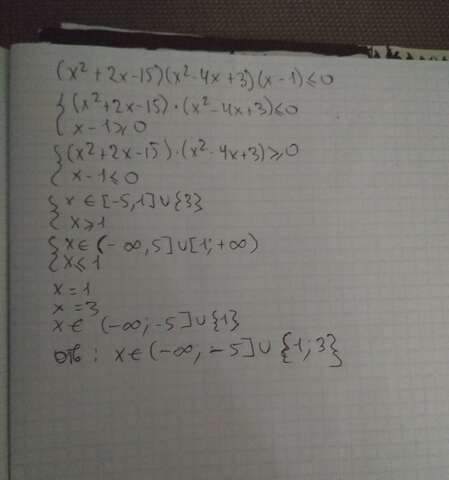 (x² + 2x - 15)(x² - 4x + 3)(x - 1) ≤ 0
{(x² + 2x - 15) · (x² - 4x + 3) ≤ 0
x - 1 ≥ 0
{(x² + 2x - 15) · (x² - 4x + 3) ≥ 0
x - 1 ≤ 0
{x ∈ [-5,1] ∪ {3}
x ≥ 1
{x ∈ (-∞, 5] ∪ [1; +∞)
x ≤ 1
x = 1
x = 3
x ∈ (-∞; -5] ∪ {1}
отв: x ∈ (-∞; -5] ∪ {1; 3}